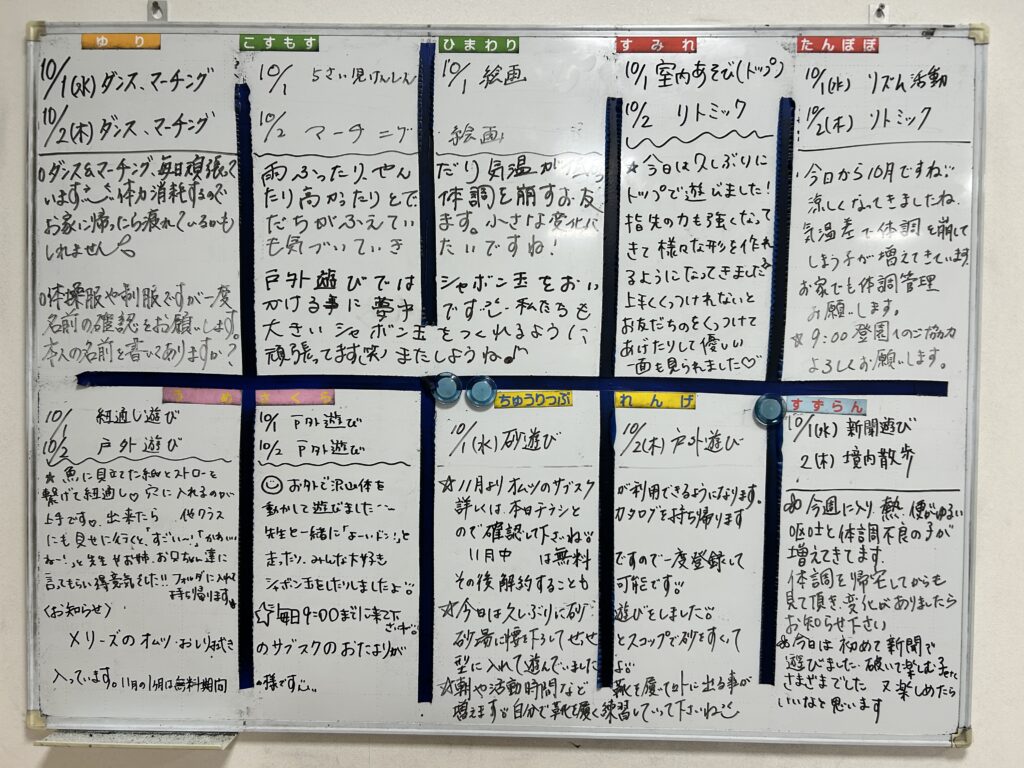 ゆり
10/1(水) ダンス、マーチング
10/2(木) ダンス、マーチング
○ダンス&マーチング、毎日頑張って
います 体力消耗するので
お家に帰ったら疲れているかも
しれません
○体操服や制服ですが一度
名前の確認をお願いします。
本人の名前を書いてありますか?
こすもす
10/1 5さい児けんしん
10/2 マーチング
ひまわり
10/1 絵画
絵画
雨ふったり、やん だり気温が
たり高かったりとで 体調を崩すお友
だちがふえてい ます。小さな変化に
も気づいていき たいですね!
戸外遊びでは シャボン玉をおい
かける事に夢中 です 私たちも
大きいシャボン玉をつくれるように
頑張ってます(笑) またしようね♪
すみれ
10/1 室内あそび(トップ)
10/2 リトミック
★今日は久しぶりに
トップで遊びました!
指先の力も強くなって
きて様々な形を作れ
るようになってきました
上手くくっつけれないと
お友だちのをくっつけて
あげたりして優しい
一面を見られました♡
たんぽぽ
10/1(水) リズム活動
10/2(木) リトミック
今日から10月ですね
涼しくなってきましたね
気温差で体調を崩して
しまう子が増えてきています
お家でも体調管理
お願いします。
☆9:00登園へのご協力
よろしくお願いします。
うめ
10/1 紐通し遊び
10/2 戸外遊び
★魚に見立てた紙とストローを
繋げて紐通し 穴に入れるのが
上手です 出来たら 他クラス
にも見せに行くと、すごい〜!「かわいい
ね〜!」と先生やお姉、お兄ちゃん達に
言てもらい得意気でした!! フォルダに入れて
持ち帰ります
さくら
10/1 戸外遊び
10/2 戸外遊び
お外で沢山体を
動かして遊びました
先生と一緒に「よーいどん!」と
走ったり、みんな大好き
シャボン玉をしたりしましたよ
☆毎日9:00までに来て下
さいね
〈お知らせ〉
メリーズのオムツ・おしりふき のサブスクのおたよりが
入っています。11月の1ヶ月は無料期間 の様です
ちゅうりっぷ
10/1(水) 砂遊び
れんげ
10/2(木) 戸外遊び
☆11月よりオムツのサブスク が利用できるようになります。
詳しくは本日チラシと カタログを持ち帰ります
ので確認して下さいね
11月中 は無料 ですので一度登録して
その後解約することも 可能です
☆今日は久しぶりに砂 遊びをしました
砂場に腰を下ろしてせっせ とスコップで砂をすくって
型に入れて遊んでいました よ
☆朝や活動時間など 靴を履いて外に出る事が
増えます 自分で靴を履く練習していって下さいね
すずらん
10/1(水) 新聞遊び
2(木) 境内散歩
今週に入り、熱、便がゆるい
嘔吐と体調不良の子が
増えてきてます。
体調を帰宅してからも
見て頂き、変化がありましたら
お知らせ下さい
今日は初めて新聞で
遊びました 破いて楽しむ子
さまざまでした 又楽しめたら
いいなと思います